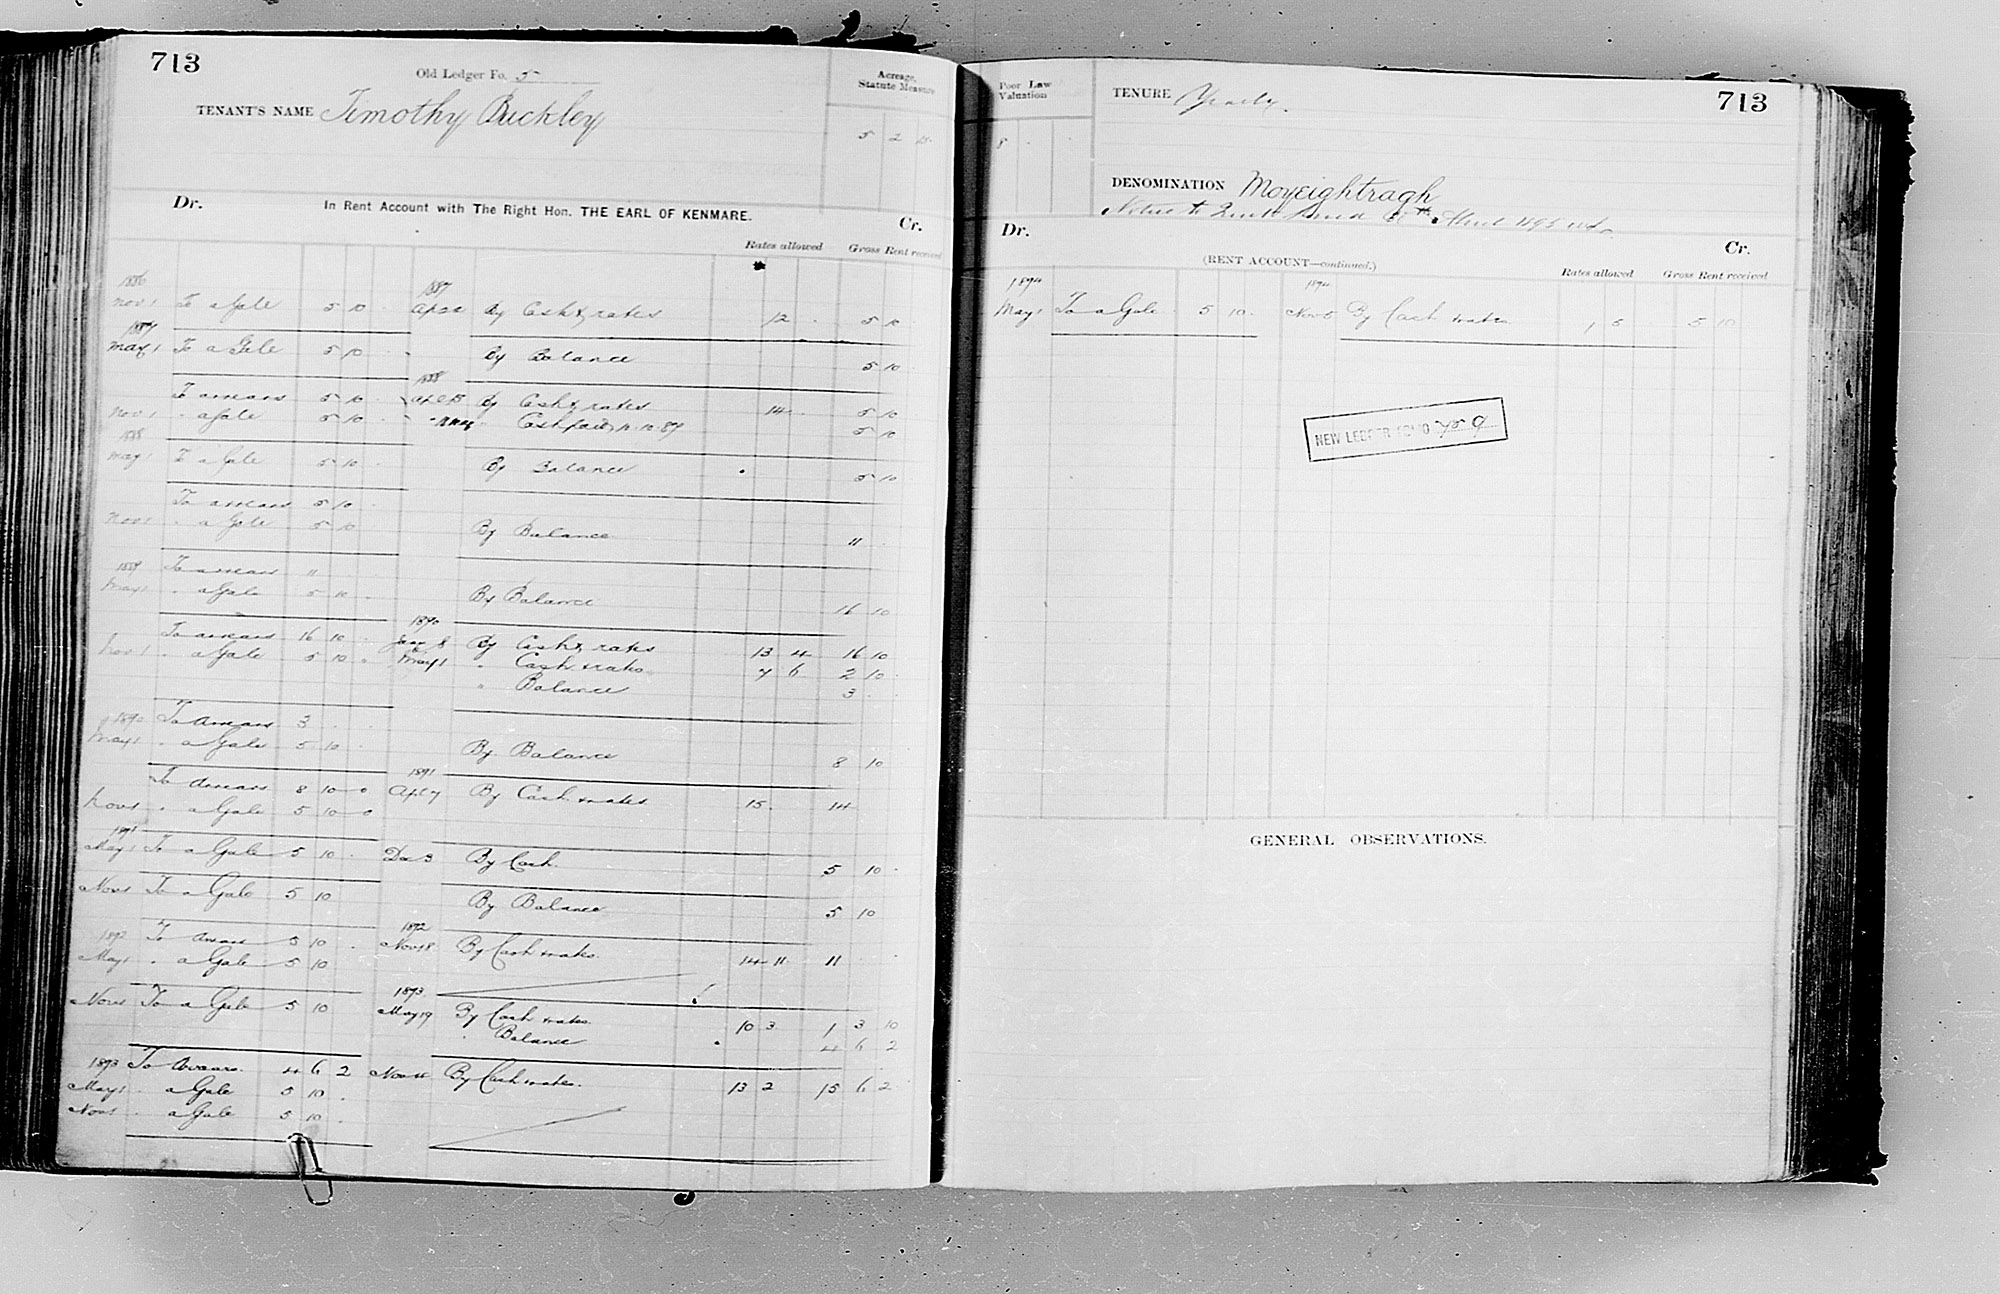 713
Old Ledger Fo. 5
Acreage, Statute Measure
TENANT'S NAME Timothy Buckley
5 2
Dr. In Rent Account with The Right Hon. THE EARL OF KENMARE. Cr.
Rates allowed Gross Rent received
1886 1887
Nov 1 To a Gale 5 10 By Cash & rates 12 5 10
1887
May 1 To a Gale 5 10 By Balance 5 10
1888
To arrears 5 10 By Cash & rates 14 5 10
Nov 1 " a Gale 5 10 " Cash paid 5 10
1888
May 1 To a Gale 5 10 By Balance 5 10
To arrears 5 10
Nov 1 " a Gale 5 10 By Balance 11
1889 To arrears 11
May 1 " a Gale 5 10 By Balance 16 10
1890
To arrears 16 10 By Cash & rates 13 4 16 10
Nov 1 " a Gale 5 10 May 1 " Cash & rates 7 6 2 10
" Balance 3
1890 To Arrears 3
May 1 " a Gale 5 10 By Balance 8 10
1891
To Arrears 8 10 0 Apl 7 By Cash & rates 15 14
Nov 1 " a Gale 5 10 0
1891
May 1 To a Gale 5 10 Dec 3 By Cash 5 10
Nov 1 To a Gale 5 10 By Balance 5 10
1892
1892 To Arrears 5 10 Nov 18 By Cash & rates 14 11 11
May 1 " a Gale 5 10
1893
Nov 1 To a Gale 5 10 May 19 By Cash & rates 10 3 1 3 10
" Balance 4 6 2
1893 To Arrears 4 6 2 By Cash & rates 13 2 15 6 2
May 1 " a Gale 5 10
Nov 1 " a Gale 5 10
Poor Law Valuation
8
TENURE Yearly.
713
DENOMINATION Moyeightragh
Notice to Quit
Dr. (RENT ACCOUNT—continued.) Cr.
Rates allowed Gross Rent received
1894 1894
May 1 To a Gale 5 10 Nov 5 By Cash & rates 1 5 5 10
NEW LEDGER FOLIO
GENERAL OBSERVATIONS.